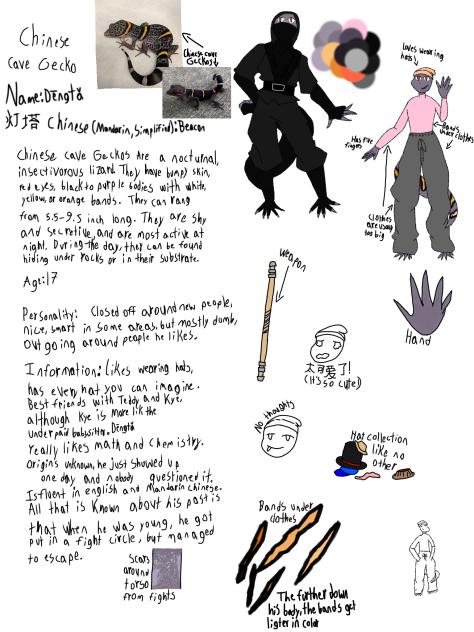 Chinese
cave Gecko
Chinese cave
Geckos
Name: Dēngtǎ
灯塔 Chinese (Mandarin, Simplified): Beacon
Chinese cave Geckos Are a nocturnal,
insectivorous lizard. They have bumpy skin,
red eyes, black to purple bodies with white,
yellow, or orange bands. They can rang
from 5.5-9.5 inch long. They are shy
and secretive, and are most active at
night. During the day, they can be found
hiding under rocks or in their substrate.
Age: 17
Personality: Closed off around new people,
nice, smart in some areas, but mostly dumb,
out going around people he likes.
Information: Likes wearing hats,
has every hat you can imagine.
Best friends with Teddy and Kye,
although Kye is more like the
under paid babysitter. Dēngtǎ
really likes math and chemistry.
Origins unknown, he just showed up
one day and nobody questioned it.
Is fluent in english and Mandarin chinese.
All that is known about his past is
that when he was young, he got
put in a fight circle, but managed
to escape.
Scars
around
torso
from fights
Loves wearing
hats
Bands
under clothes
Has five
fingers
Clothes
are usually
too big
Hand
Weapon
太可爱了!
(It's so cute!)
No thoughts
Hat collection
like no
other
Bands under
clothes
The further down
his body, the bands get
ligter in color